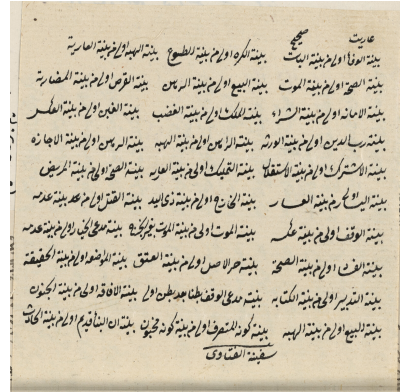 عاريت صحيح
بينة الوفا اولى من بينة البتات بينة الكره اولى من بينة الطوع بينة الهبه اولى من بينة العارية
بينة الصحة اولى من بينة الموت بينة البيع اولى من بينة الرهن بينة القرض اولى من بينة المضاربة
بينة الامانه اولى من بينة الشراء بينة الملك اولى من بينة الغصب بينة الغبن اولى من بينة
بينة رب الدين اولى من بينة الورثه بينة الرهن اولى من بينة الهبه بينة الرهن اولى من بينة الاجاره
بينة الاشتراك اولى من بينة الاستقلال بينة التمليك اولى من بينة العاريه بينة الصحة اولى من بينة المرض
بينة اليسار اولى من بينة بينة الخارج اولى من بينة ذى اليد بينة القتل اولى من بينة عدمه
بينة الوقف اولى من بينة بينة الموت اولى من بينة الموت بينة مدعى الخيار اولى من بينة عدمه
بينة اولى من بينة الصحة بينة حر الاصل اولى من بينة العتق بينة اولى من بينة الحقيقة
بينة التدبير اولى من بينة الكتابه بينة مدعى الوقف بطنا بعد بطن اولى بينة الافاقه اولى من بينة الجنون
بينة البيع اولى من بينة الهبه بينة كونه المتصرف اولى من بينة كونه مجنون بينة ان البنا قديم اولى من بينة الحادث
سفينة الفتاوى